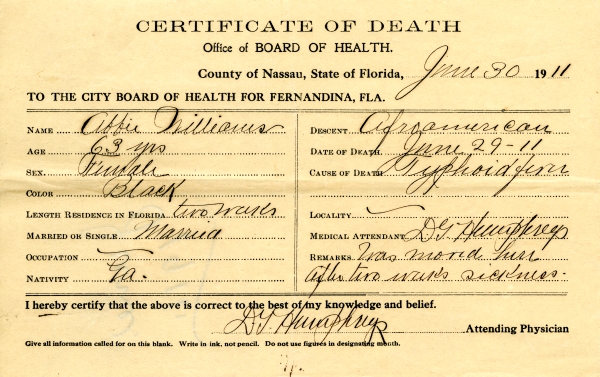 CERTIFICATE OF DEATH
Office of BOARD OF HEALTH.
County of Nassau, State of Florida, June 30 1911
TO THE CITY BOARD OF HEALTH FOR FERNANDINA, FLA.
NAME Abbie Williams
AGE 63 yrs
SEX. Female
COLOR Black
LENGTH RESIDENCE IN FLORIDA two weeks
MARRIED OR SINGLE Married
OCCUPATION
NATIVITY Ga.
DESCENT Afroamerican
DATE OF DEATH June 29-11
CAUSE OF DEATH Typhoid fever
LOCALITY
MEDICAL ATTENDANT D.G. Humphreys
REMARKS Was moved here
after two weeks sickness.
I hereby certify that the above is correct to the best of my knowledge and belief.
D.G. Humphreys Attending Physician
Give all information called for on this blank. Write in ink, not pencil. Do not use figures in designating month.